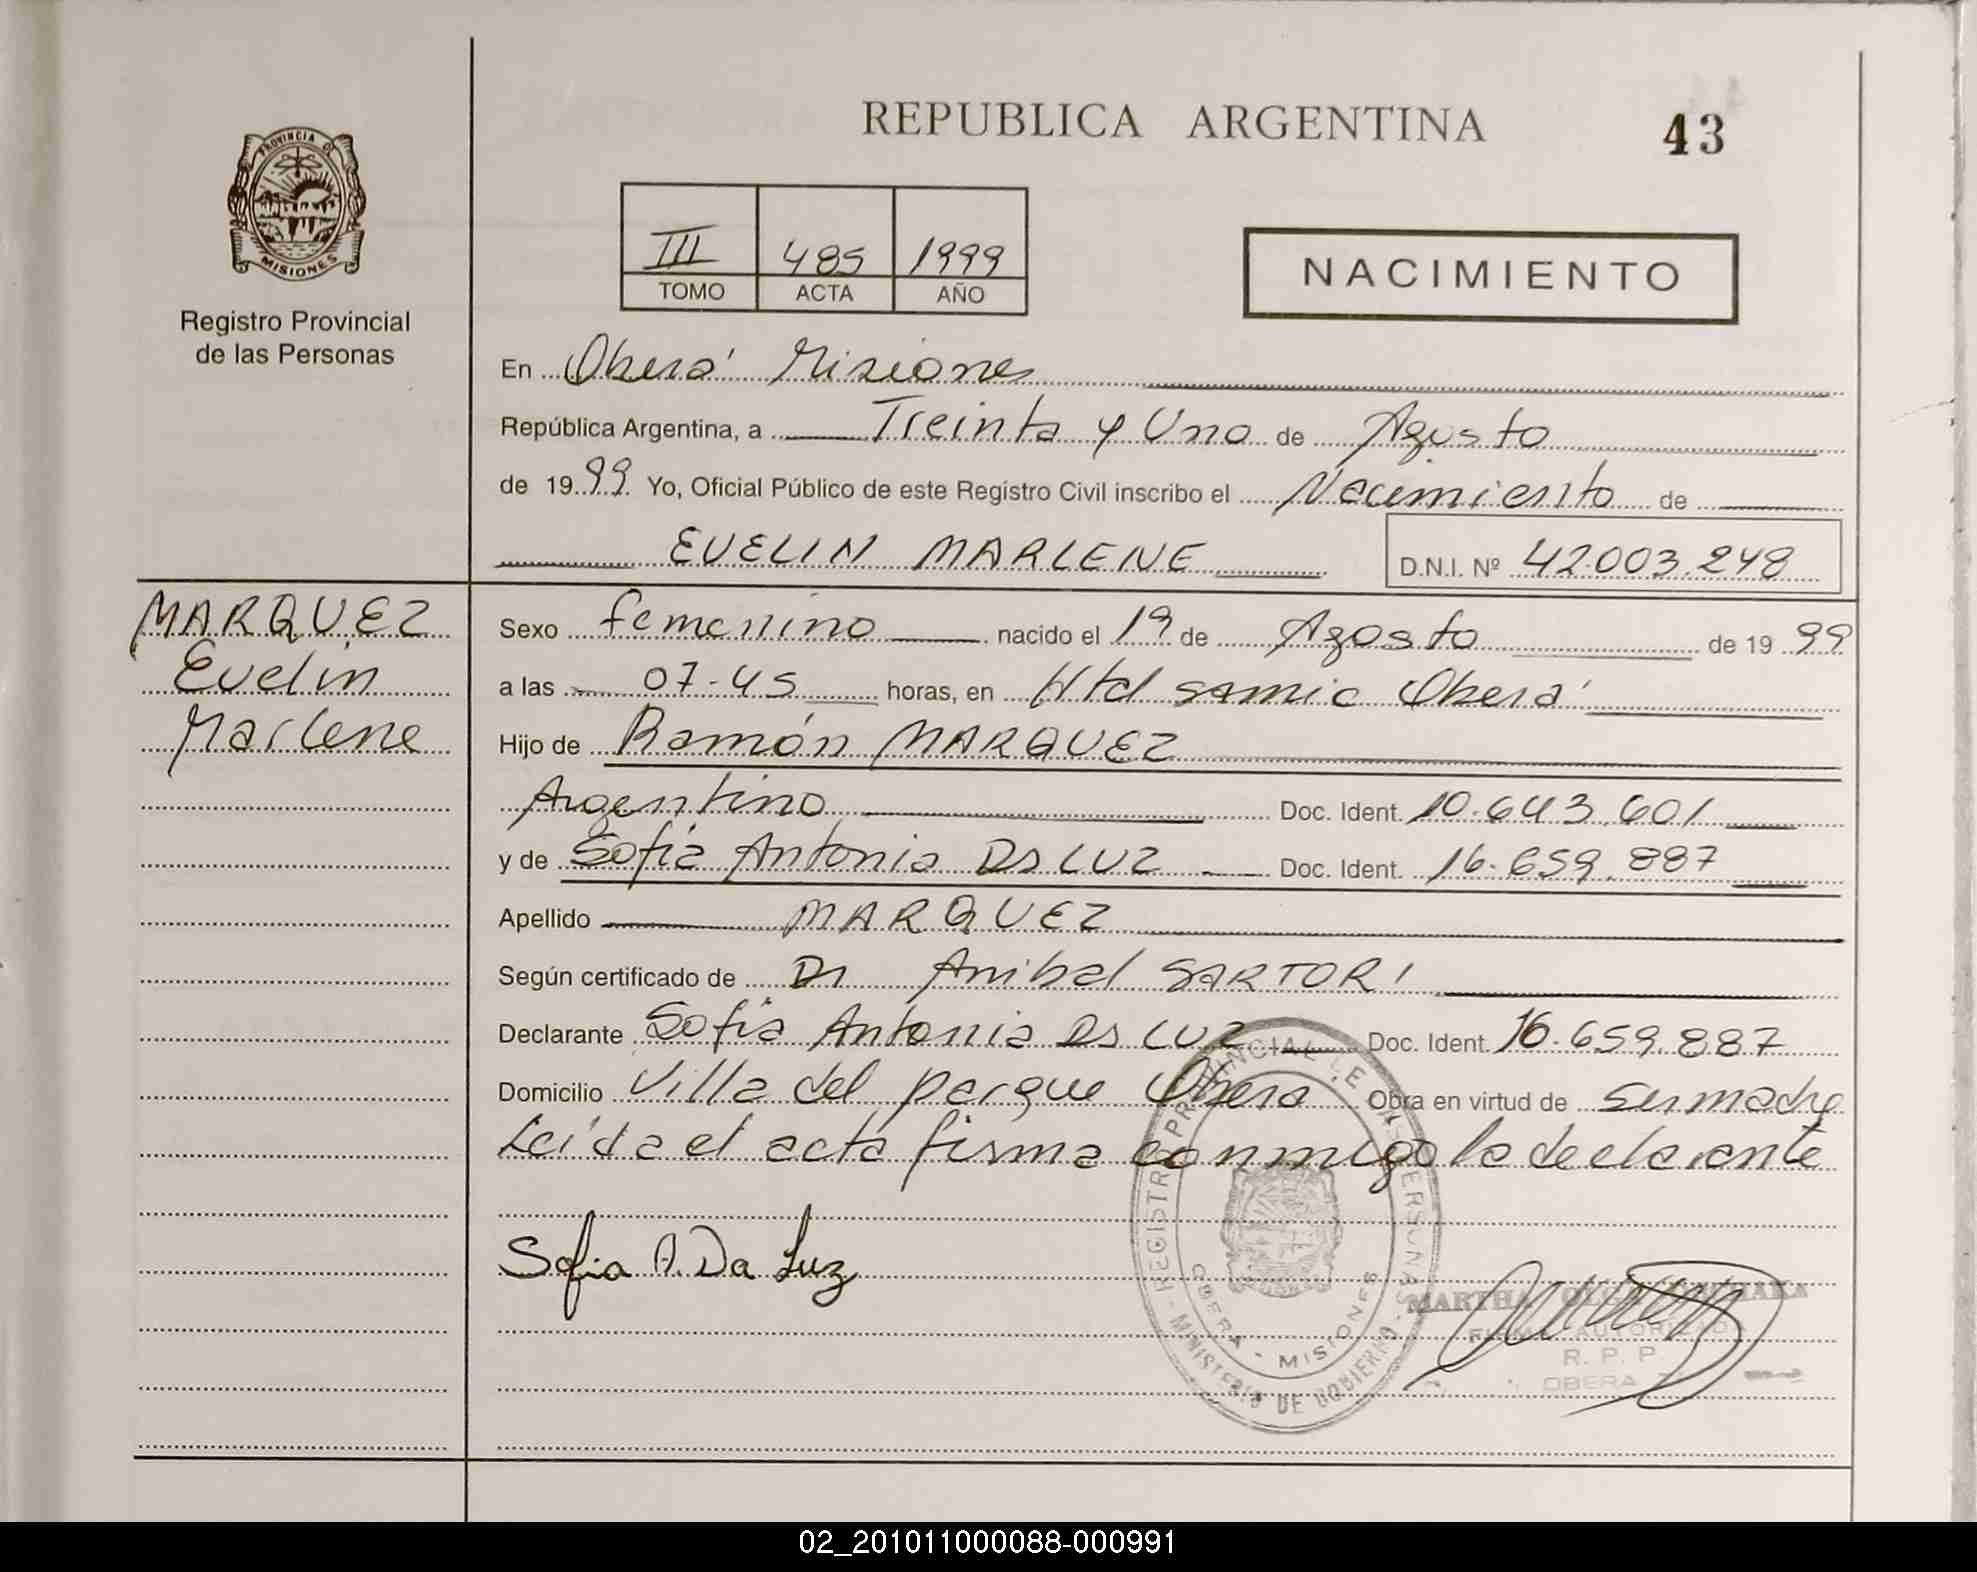 REPUBLICA ARGENTINA
43
PROVINCIA DE
MISIONES
Registro Provincial
de las Personas
III 485 1999
TOMO ACTA AÑO
NACIMIENTO
En Oberá Misiones
República Argentina, a Treinta y Uno de Agosto
de 1999 Yo, Oficial Público de este Registro Civil inscribo el Nacimiento de
EVELIN MARLENE D.N.I. Nº 42.003.248
MARQUEZ
Evelin
Marlene
Sexo femenino nacido el 19 de Agosto de 1999
a las 07-45 horas, en Htd samic Oberá
Hijo de Ramón MARQUEZ
Argentino Doc. Ident. 10.643.601
y de Sofia Antonia Da LUZ Doc. Ident. 16.659.887
Apellido MARQUEZ
Según certificado de Dr Anibal SARTORI
Declarante Sofia Antonia Da LUZ Doc. Ident. 16.659.887
Domicilio Villa del parque Oberá Obra en virtud de ser madre
Leída el acta firma conmigo la declarante
Sofia A. Da Luz
REGISTRO PROVINCIAL DE LAS PERSONAS
MINISTERIO DE GOBIERNO
OBERA - MISIONES
MARTHA OLGA
FIRMA AUTORIZADA
R. P. P
OBERA
02_201011000088-000991